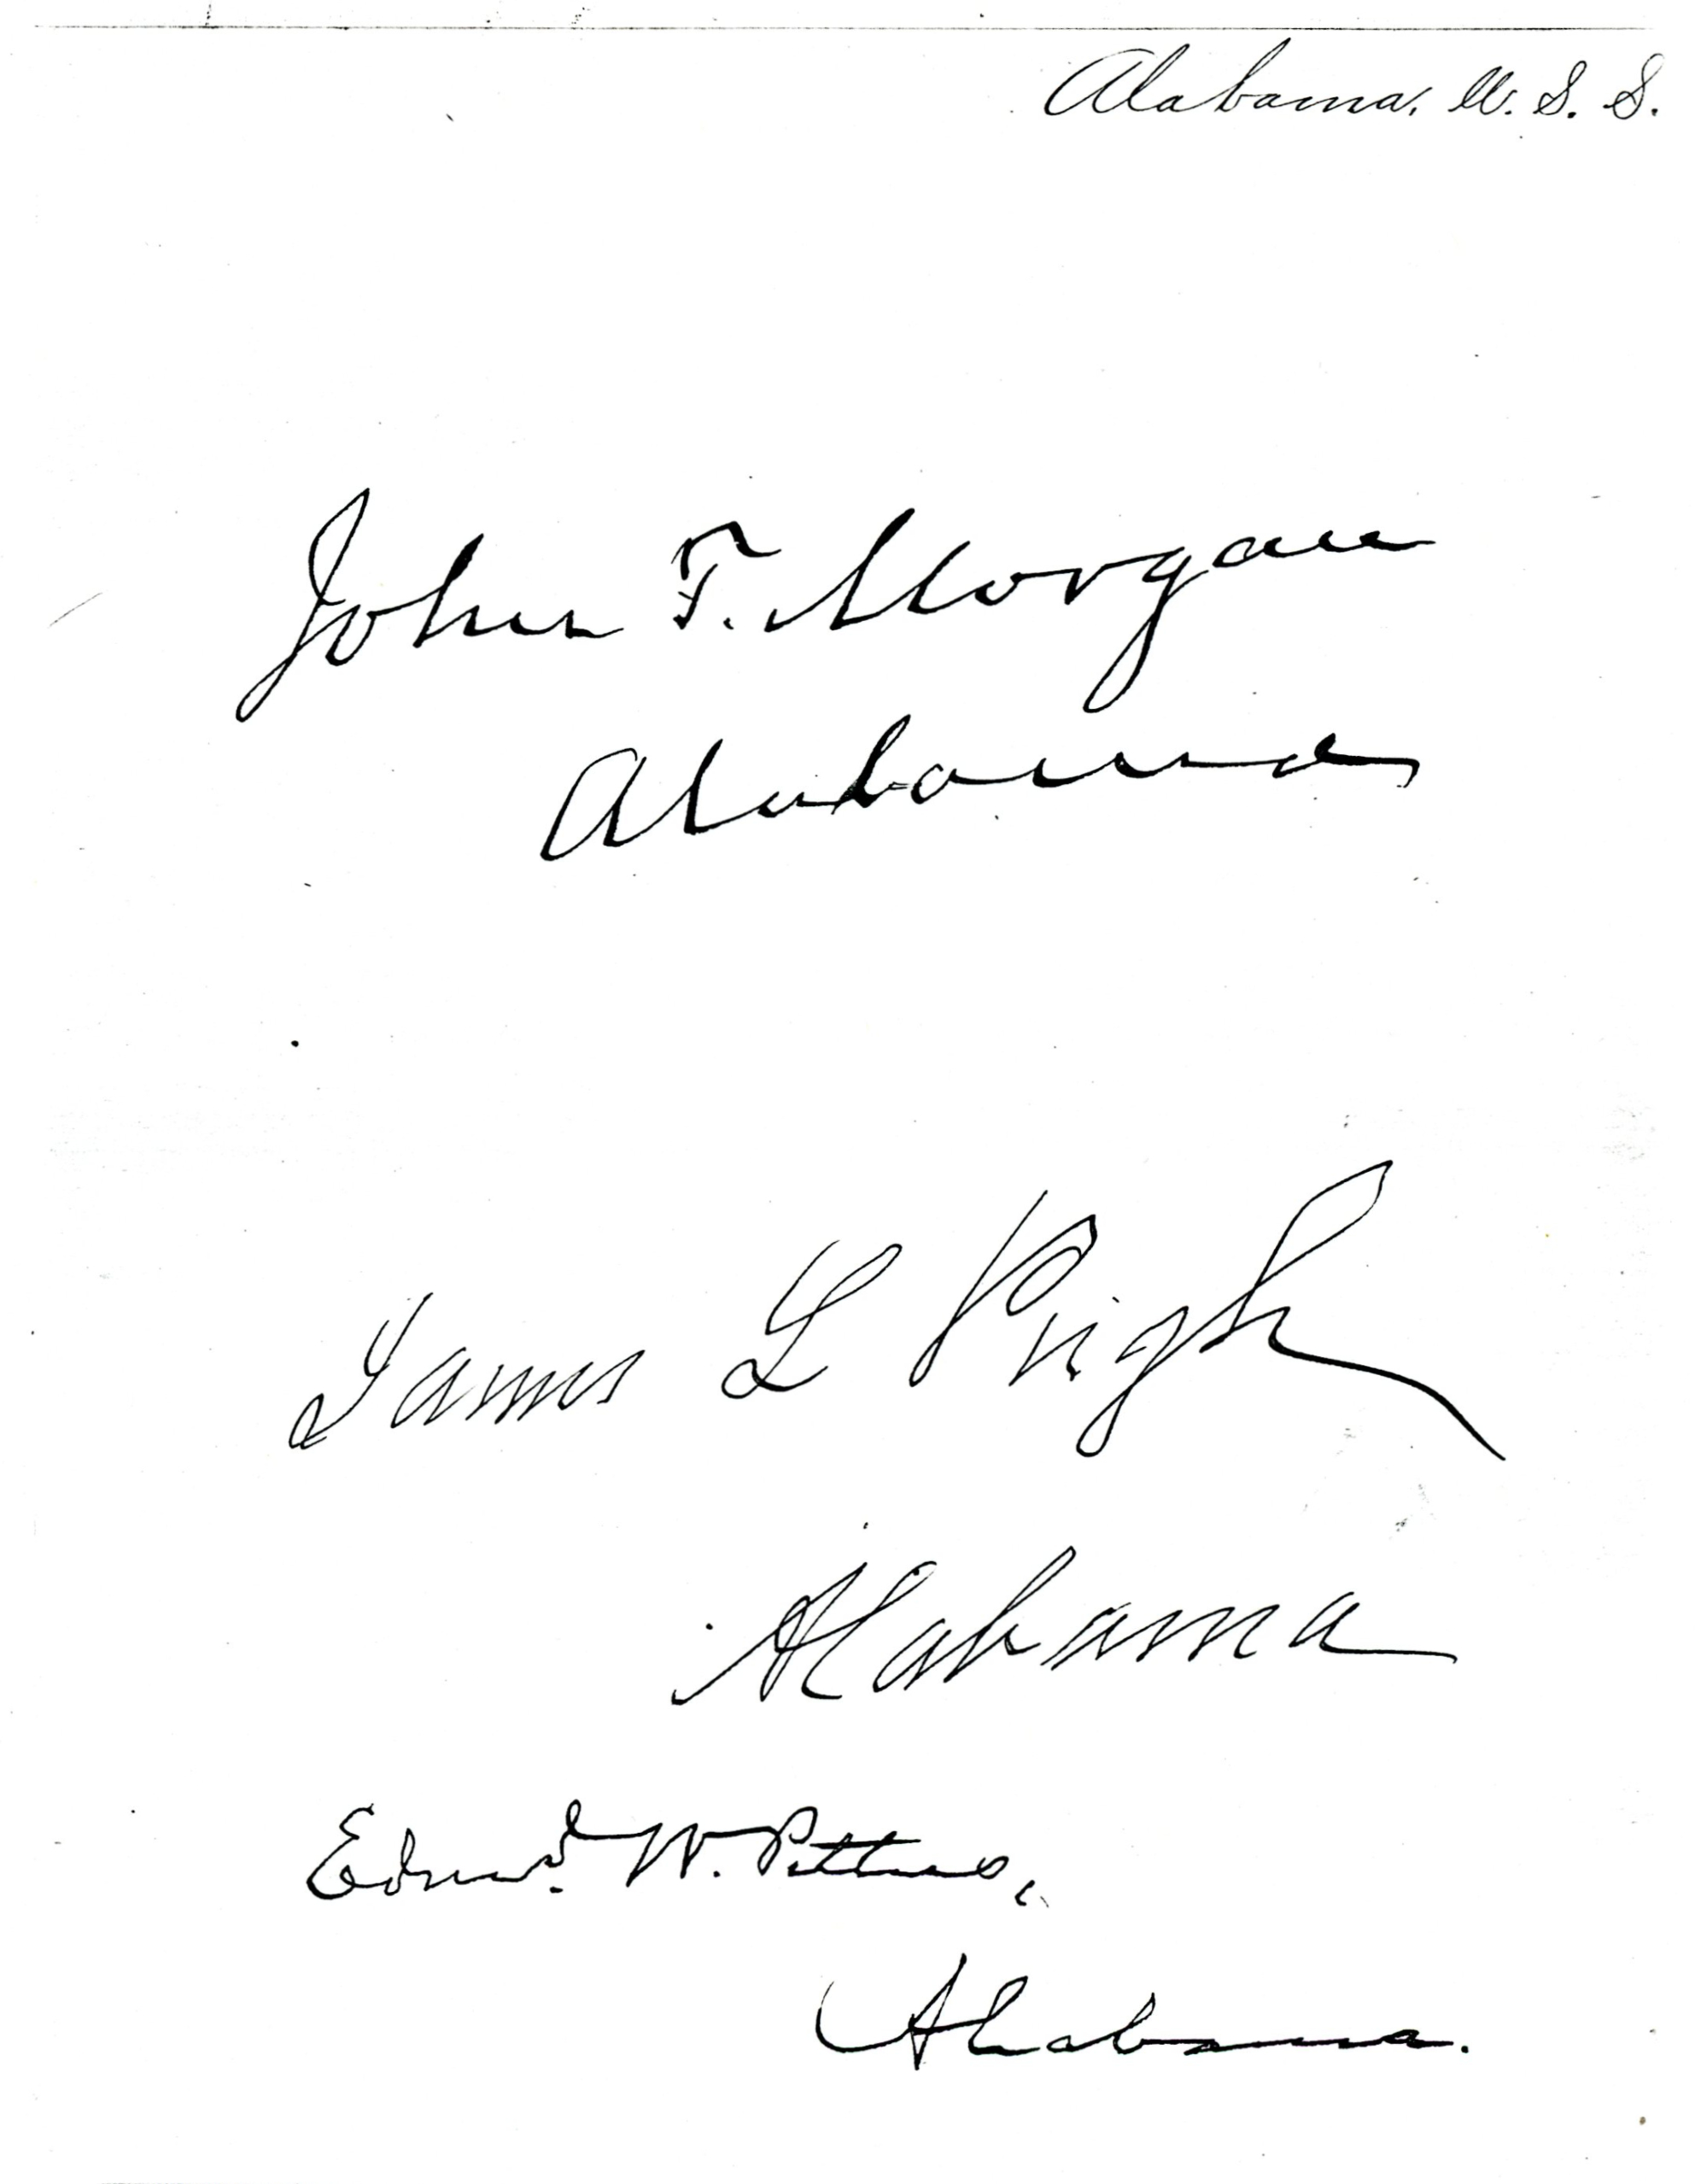 Alabama, U. S. S.
John T. Morgan
Alabama
James L Pugh
Alabama
Edmd. W. Pettus,
Alabama.